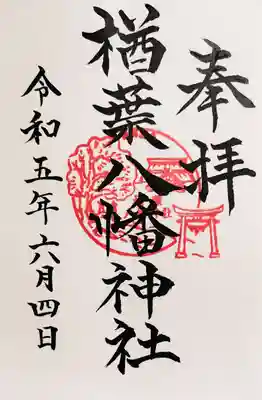 奉拝
楢葉八幡神社
令和五年六月四日